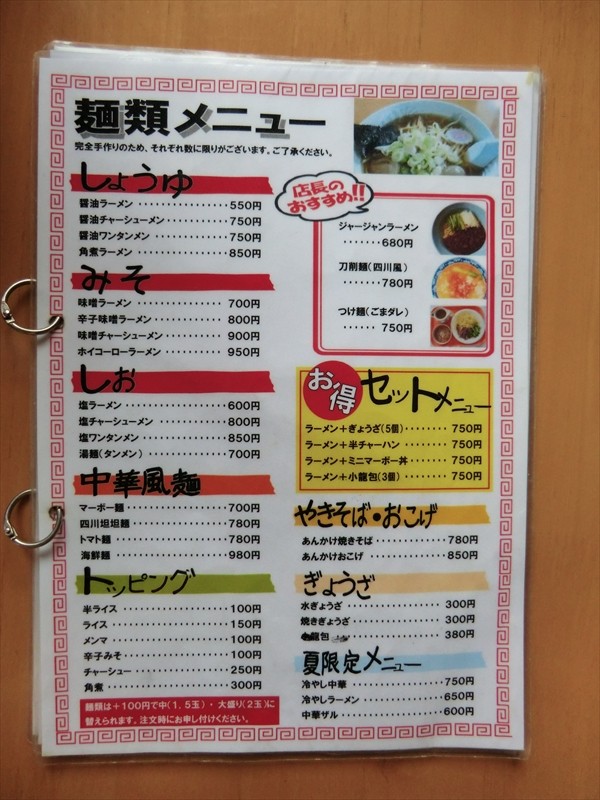 麺類メニュー
完全手作りのため、それぞれ数に限りがございます。ご了承ください。
しょうゆ
醤油ラーメン ・・・・・・・・・・・・・・・ 550円
醤油チャーシューメン ・・・・・・・・・ 750円
醤油ワンタンメン ・・・・・・・・・・・・ 750円
角煮ラーメン ・・・・・・・・・・・・・・・ 850円
みそ
味噌ラーメン ・・・・・・・・・・・・・・・ 700円
辛子味噌ラーメン ・・・・・・・・・・・・ 800円
味噌チャーシューメン ・・・・・・・・・ 900円
ホイコーローラーメン ・・・・・・・・・ 950円
しお
塩ラーメン ・・・・・・・・・・・・・・・・・ 600円
塩チャーシューメン ・・・・・・・・・・・ 800円
塩ワンタンメン ・・・・・・・・・・・・・・ 850円
湯麺(タンメン) ・・・・・・・・・・・・・ 700円
中華風麺
マーボー麺 ・・・・・・・・・・・・・・・・・ 700円
四川坦坦麺 ・・・・・・・・・・・・・・・・・ 780円
トマト麺 ・・・・・・・・・・・・・・・・・・・ 780円
海鮮麺 ・・・・・・・・・・・・・・・・・・・・ 980円
トッピング
半ライス ・・・・・・・・・・・・・・・・・・・ 100円
ライス ・・・・・・・・・・・・・・・・・・・・ 150円
メンマ ・・・・・・・・・・・・・・・・・・・・ 100円
辛子みそ ・・・・・・・・・・・・・・・・・・ 100円
チャーシュー ・・・・・・・・・・・・・・・ 250円
角煮 ・・・・・・・・・・・・・・・・・・・・・ 300円
麺類は+100円で中(1.5玉)・大盛り(2玉)に
替えられます。注文時にお申し付けください。
店長の
おすすめ!!
ジャージャンラーメン
・・・・・・・680円
刀削麺(四川風)
・・・・・・・780円
つけ麺(ごまダレ)
・・・・・・ 750円
お得
セットメニュー
ラーメン+ぎょうざ(5個) ・・・・・・・・ 750円
ラーメン+半チャーハン ・・・・・・・・ 750円
ラーメン+ミニマーボー丼 ・・・・・・・ 750円
ラーメン+小龍包(3個) ・・・・・・・・ 750円
やきそば・おこげ
あんかけ焼きそば ・・・・・・・・・・・・ 780円
あんかけおこげ ・・・・・・・・・・・・・・ 850円
ぎょうざ
水ぎょうざ ・・・・・・・・・・・・・・・・・ 300円
焼きぎょうざ ・・・・・・・・・・・・・・・ 300円
龍包 ・・・・・・・・・・・・・・・・・ 380円
夏限定メニュー
冷やし中華 ・・・・・・・・・・・・・・・・・ 750円
冷やしラーメン ・・・・・・・・・・・・・・ 650円
中華ザル ・・・・・・・・・・・・・・・・・・ 600円